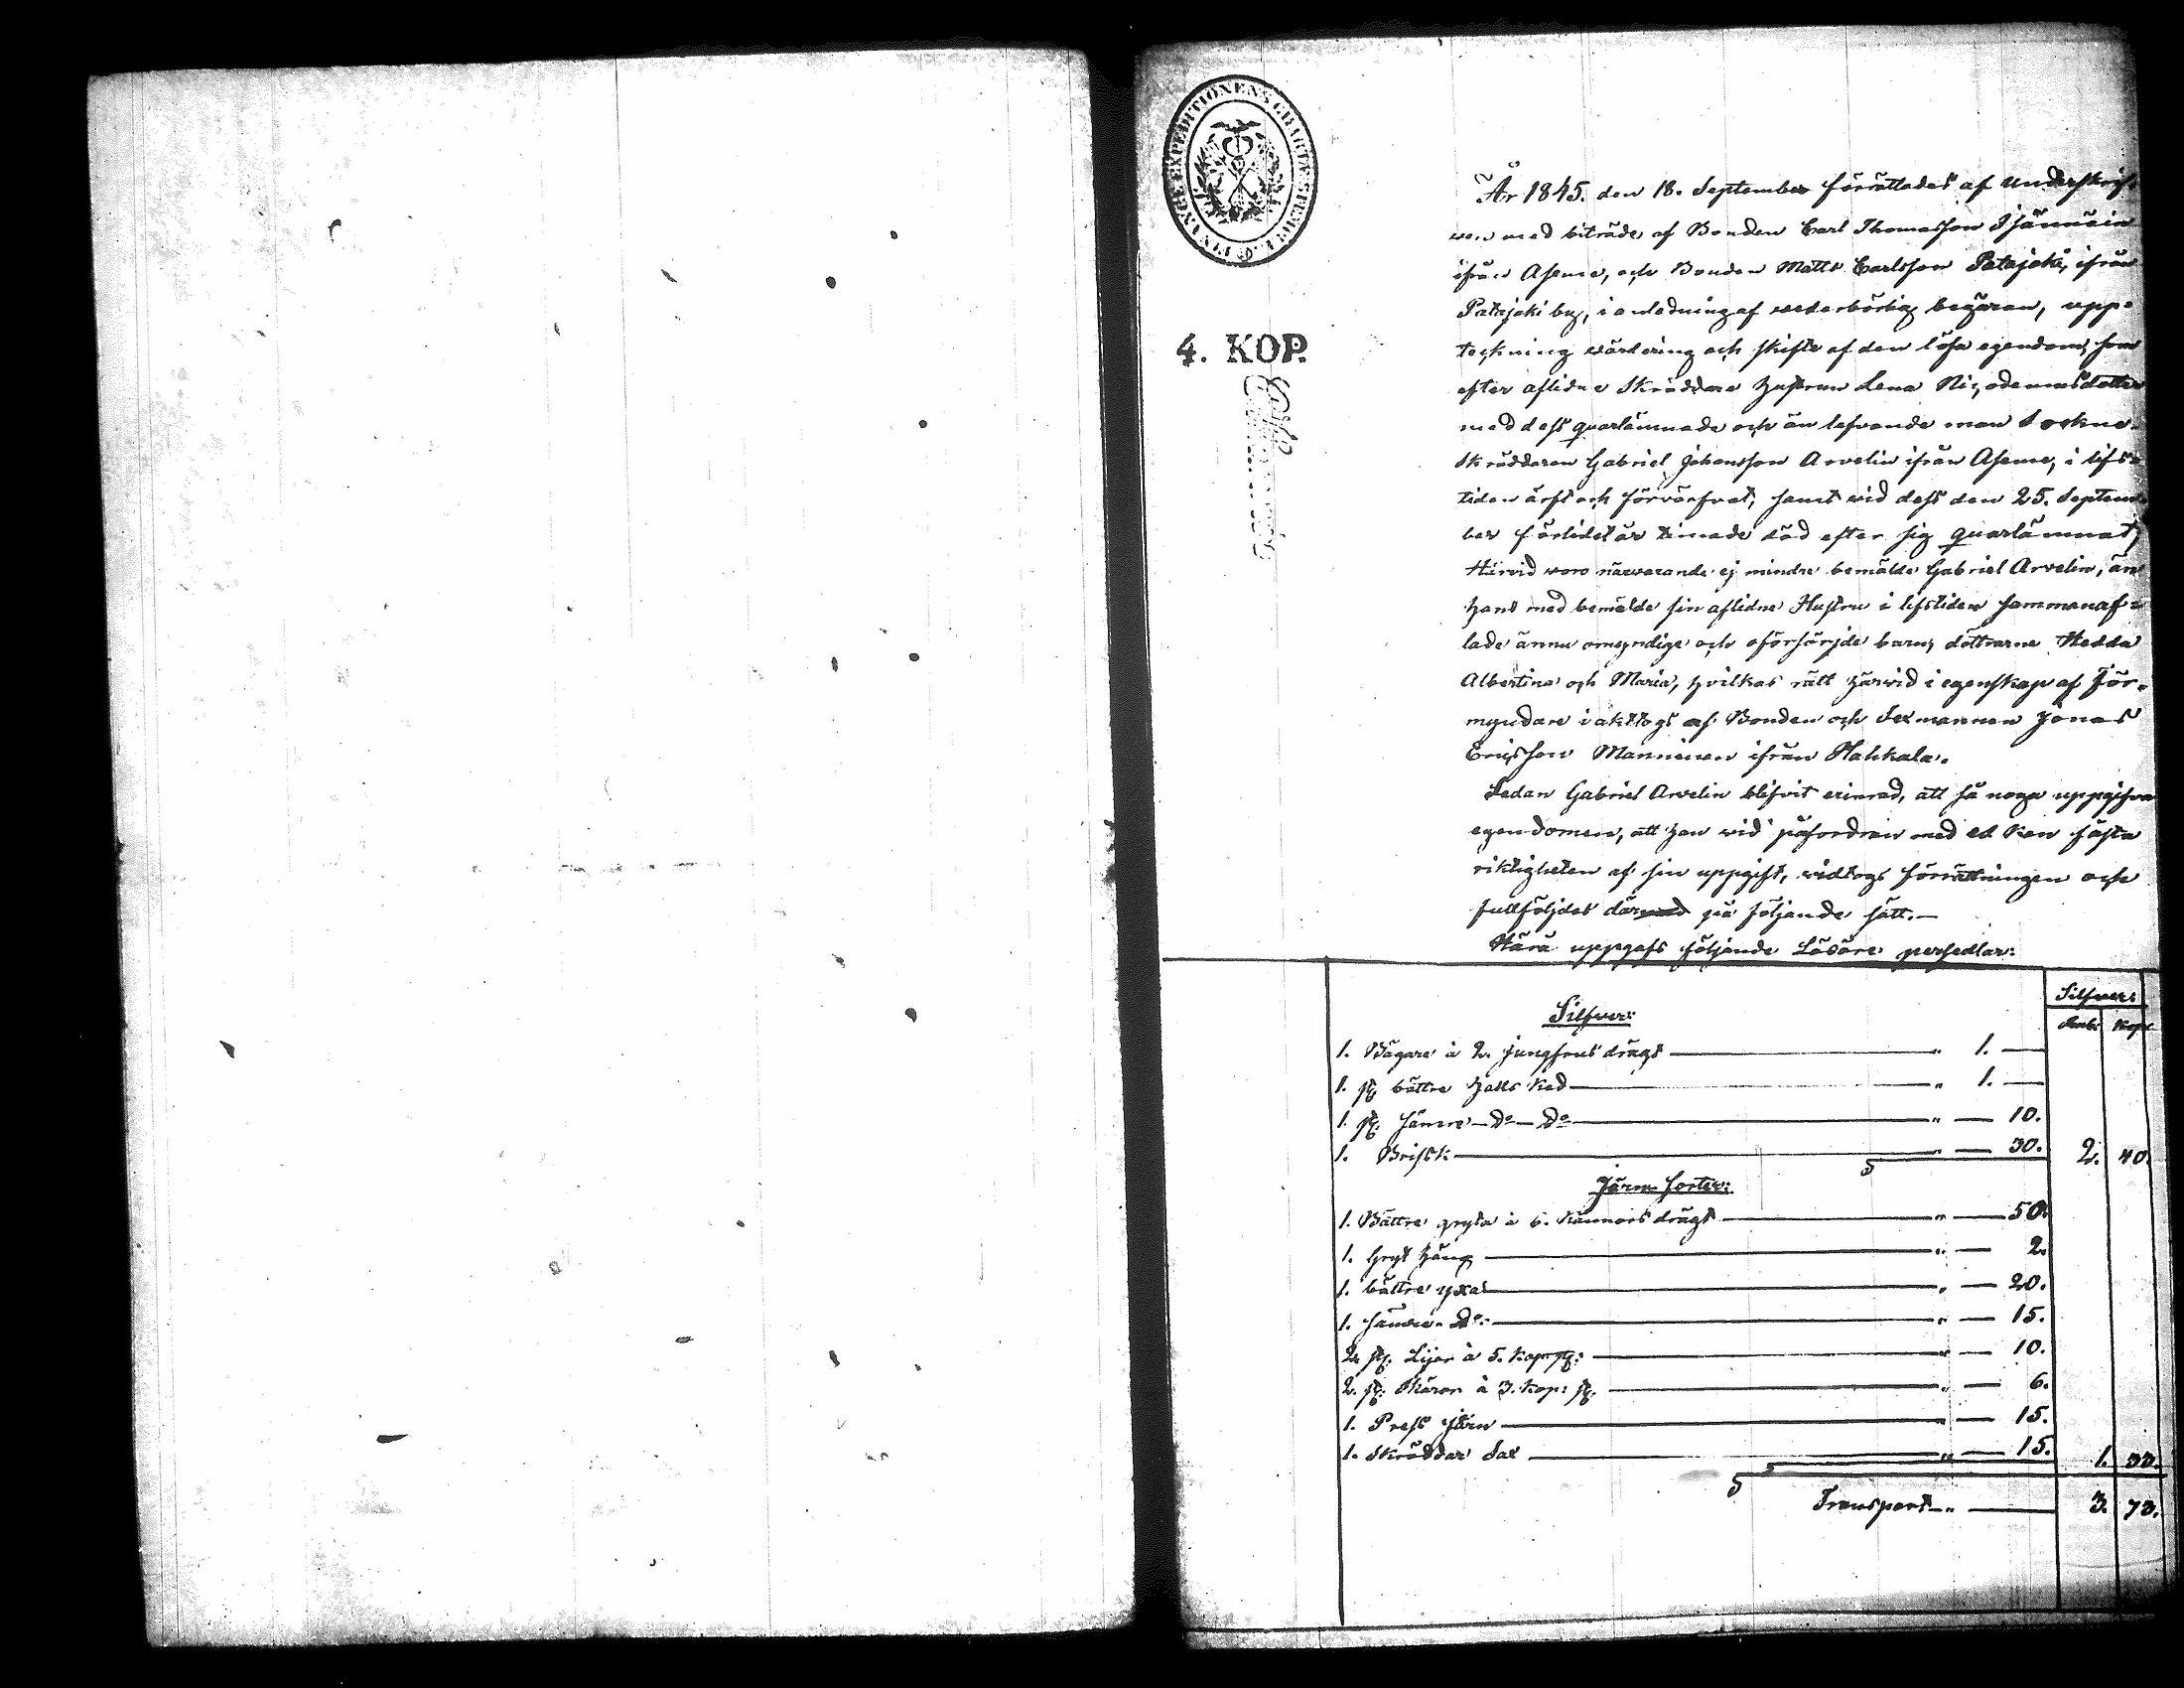 FINANCE EXPEDITIONENS CHARTÆ STEMPEL
4. KOP.
År 1845. den 18. September förrättades af underskrif-
ven med biträde af Bonden Carl Thomasson
ifrån Aseme, och Bonden Matts Carlsson Patajoki, ifrån
Patajoki by, i anledning af vederbörlig begäran, upp-
teckning värdering och skifte af den lösa egendom, som
efter aflidne Skräddare hustrun Lena Nicodemusdotter
med dess qvarlämnade och än lefvande man Sockne-
Skräddaren Gabriel Johansson Arvelin ifrån Aseme, i lifs-
tiden ärft och förvärfvat, samt vid dess den 25. Septem-
ber förlidet år timade död efter sig qvarlämnat;
Härvid voro närvarande ej mindre bemälde Gabriel Arvelin, än
hans med bemälde sin aflidne Hustru i lifstiden sammanaf-
lade ännu omyndige och oförsörjde barn, döttrarne Hedda
Albertina och Maria, hvilkas rätt härvid i egenskap af För-
myndare iakttogs af Bonden och Sexmannen Jonas
Ericsson Manninen ifrån Hakkala.
Sedan Gabriel Arvelin blifvit erinrad, att så noga uppgifva
egendomen, att han vid påfordran med ed kan fästa
riktigheten af sin uppgift, vidtogs förrättningen och
fullföljdes därmed på följande sätt.—
Härå uppgafs följande Lösöre persedlar:
Silfver:
Rub: Kop:
Silfver:
1. Bägare à 2. jungfrus drägt — " 1. —
1. st. bättre hals ked — " 1. —
1. st. sämre — Do — Do — " — 10.
1. Brisk — " — 30. 2. 40.
Järn sorter:
1. Bättre gryta à 6. kannors drägt — " — 50.
1. Gryt häng — " — 2.
1. bättre yxa — " — 20.
1. sämre Do: — " — 15.
2. st. Lijor à 5. kop st: — " — 10.
2. st. Skäror à 3. kop: st. — " — 6.
1. Press järn — " — 15.
1. Skräddar Sax — " — 15. 1. 33.
Transport — " — 3. 73.